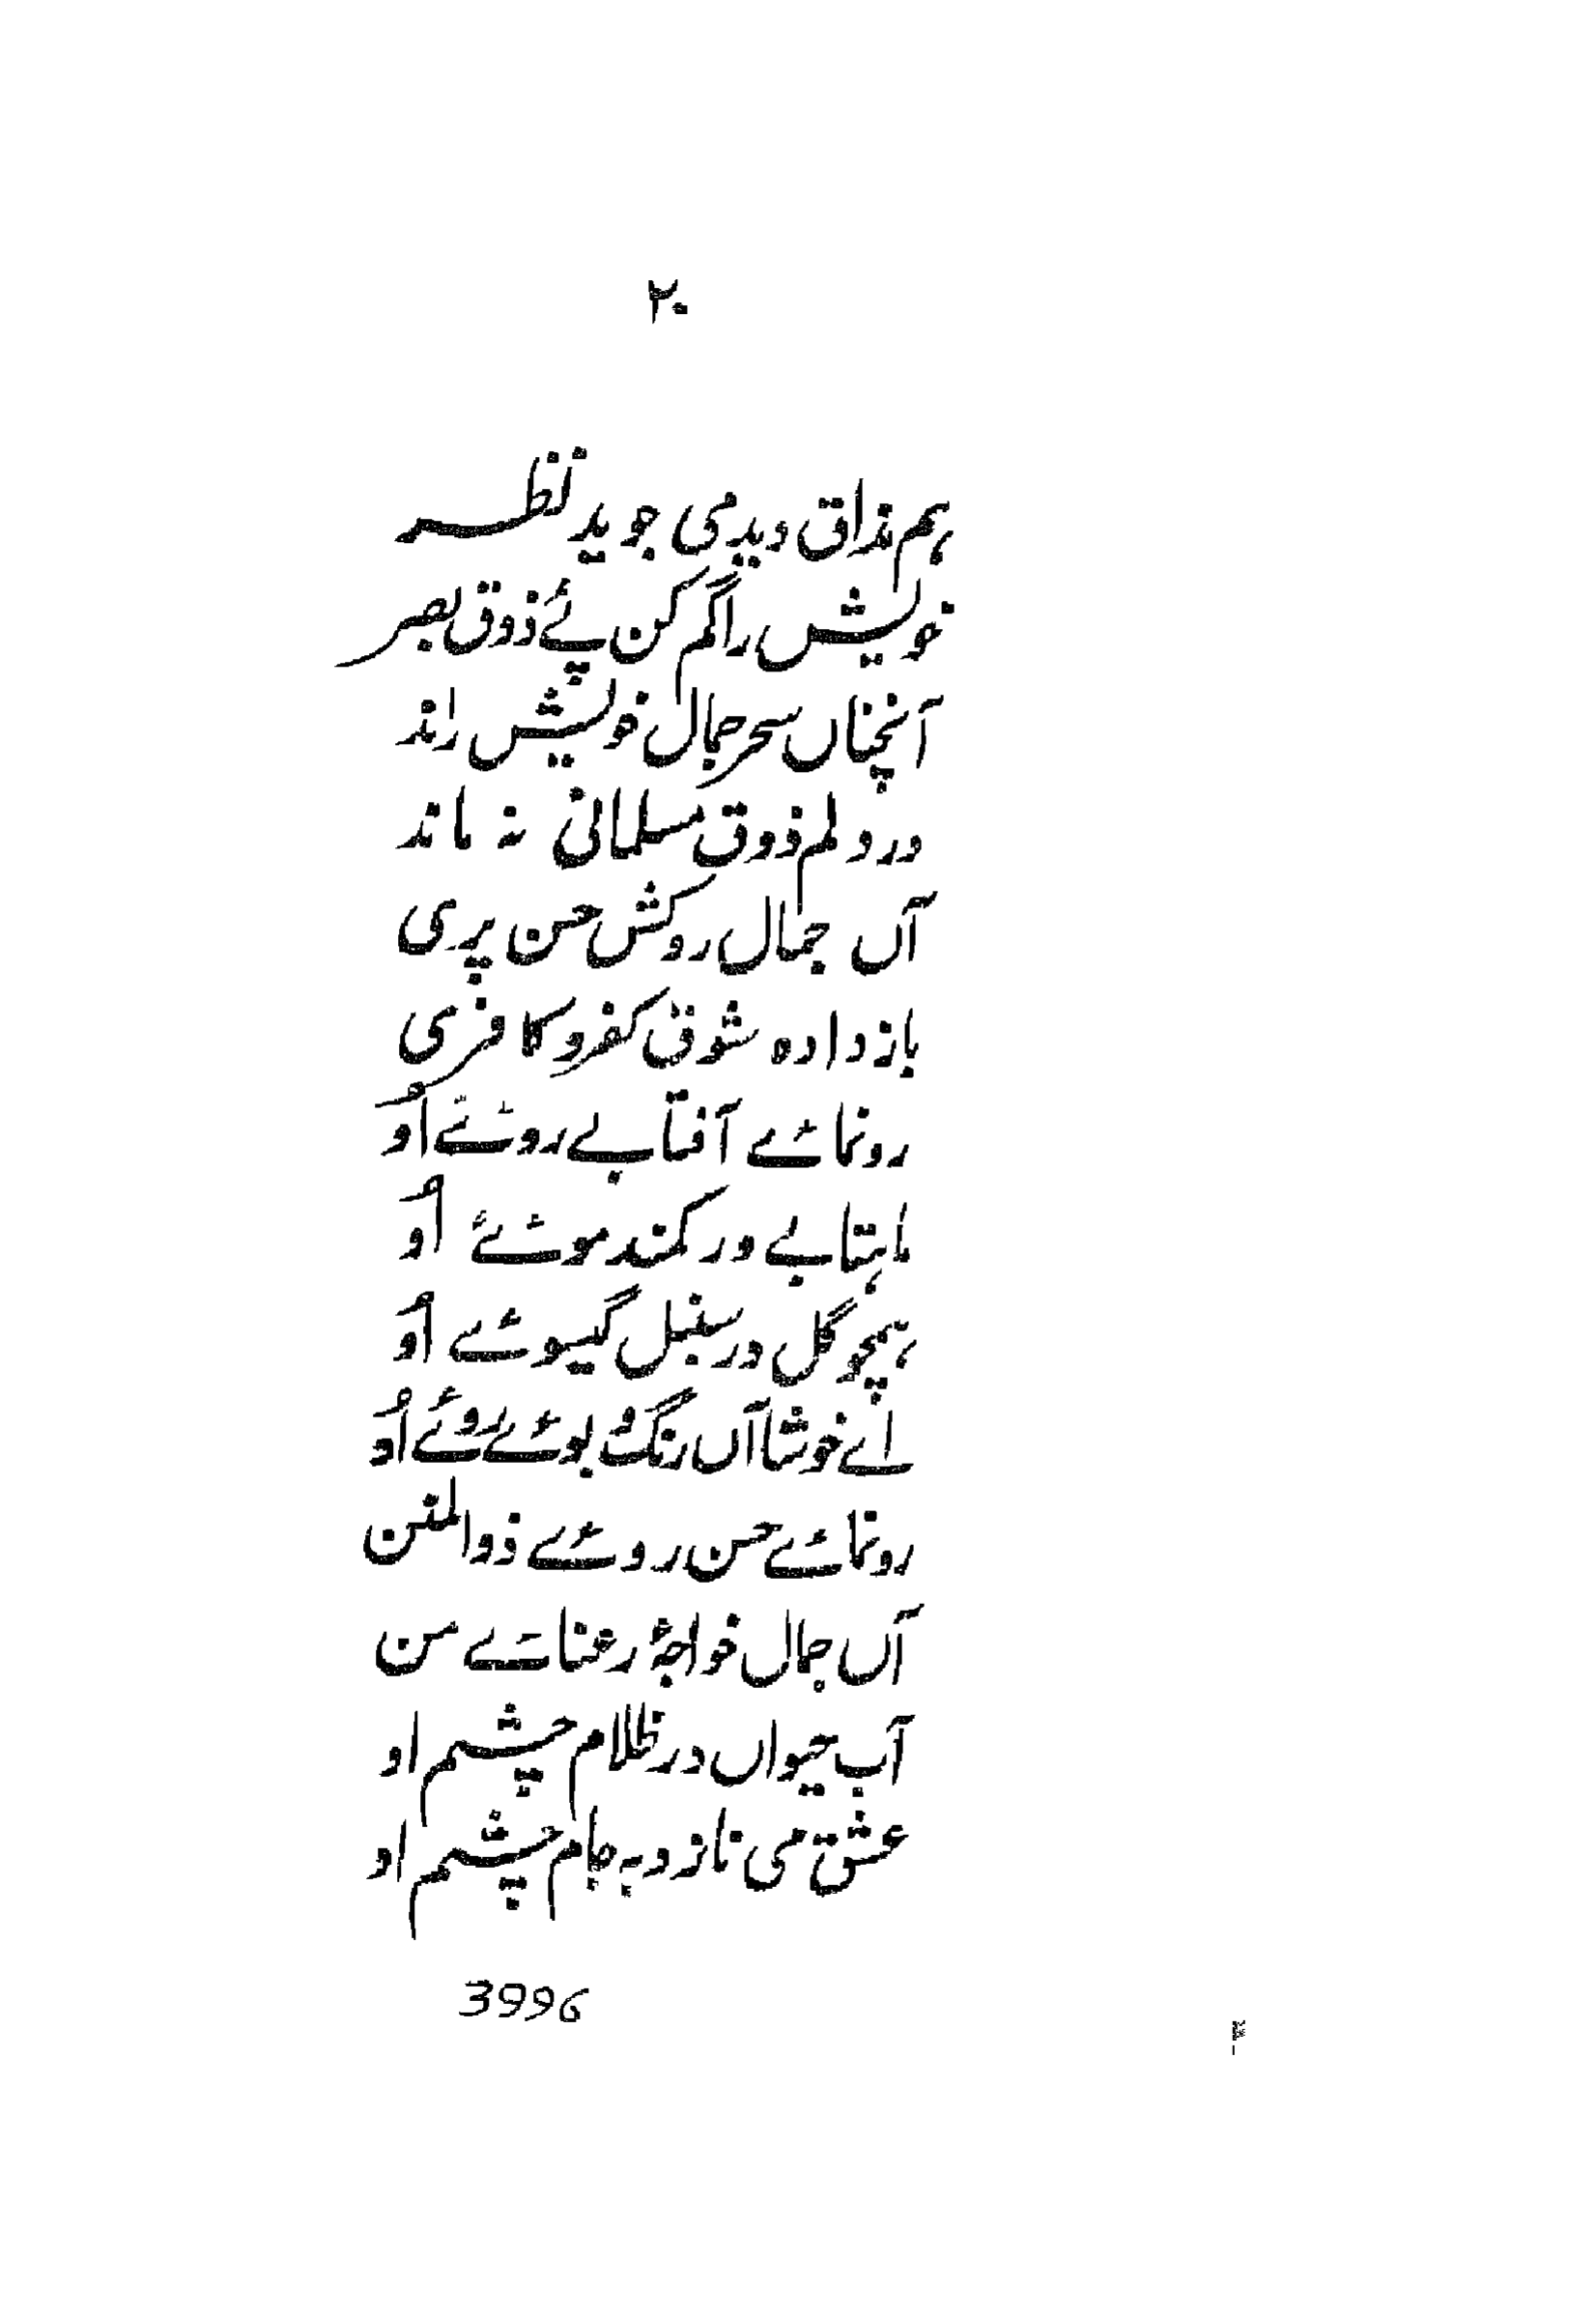 ۲۰
ہم مذاق دید می جوید نظر
خویش را گم کن پئے ذوق بصر
آنچناں سحر جمال خویش راند
در دلم ذوق مسلمانی نہ ماند
آں جمال روکش حسن پری
باز داده شوق کفر و کافری
رونمائے آفتابے روئے اُو
ماہتابے در کمند موئے اُو
ہمچو گل در سنبل گیسوئے اُو
اے خوشا آں رنگ و بوئے روئے اُو
رونمائے حسن روئے ذوالمنن
آں جمال خواجۂ رعنائے من
آب حیواں در ظلام چشم او
عشق می نازد بہ جام چشم او
3996